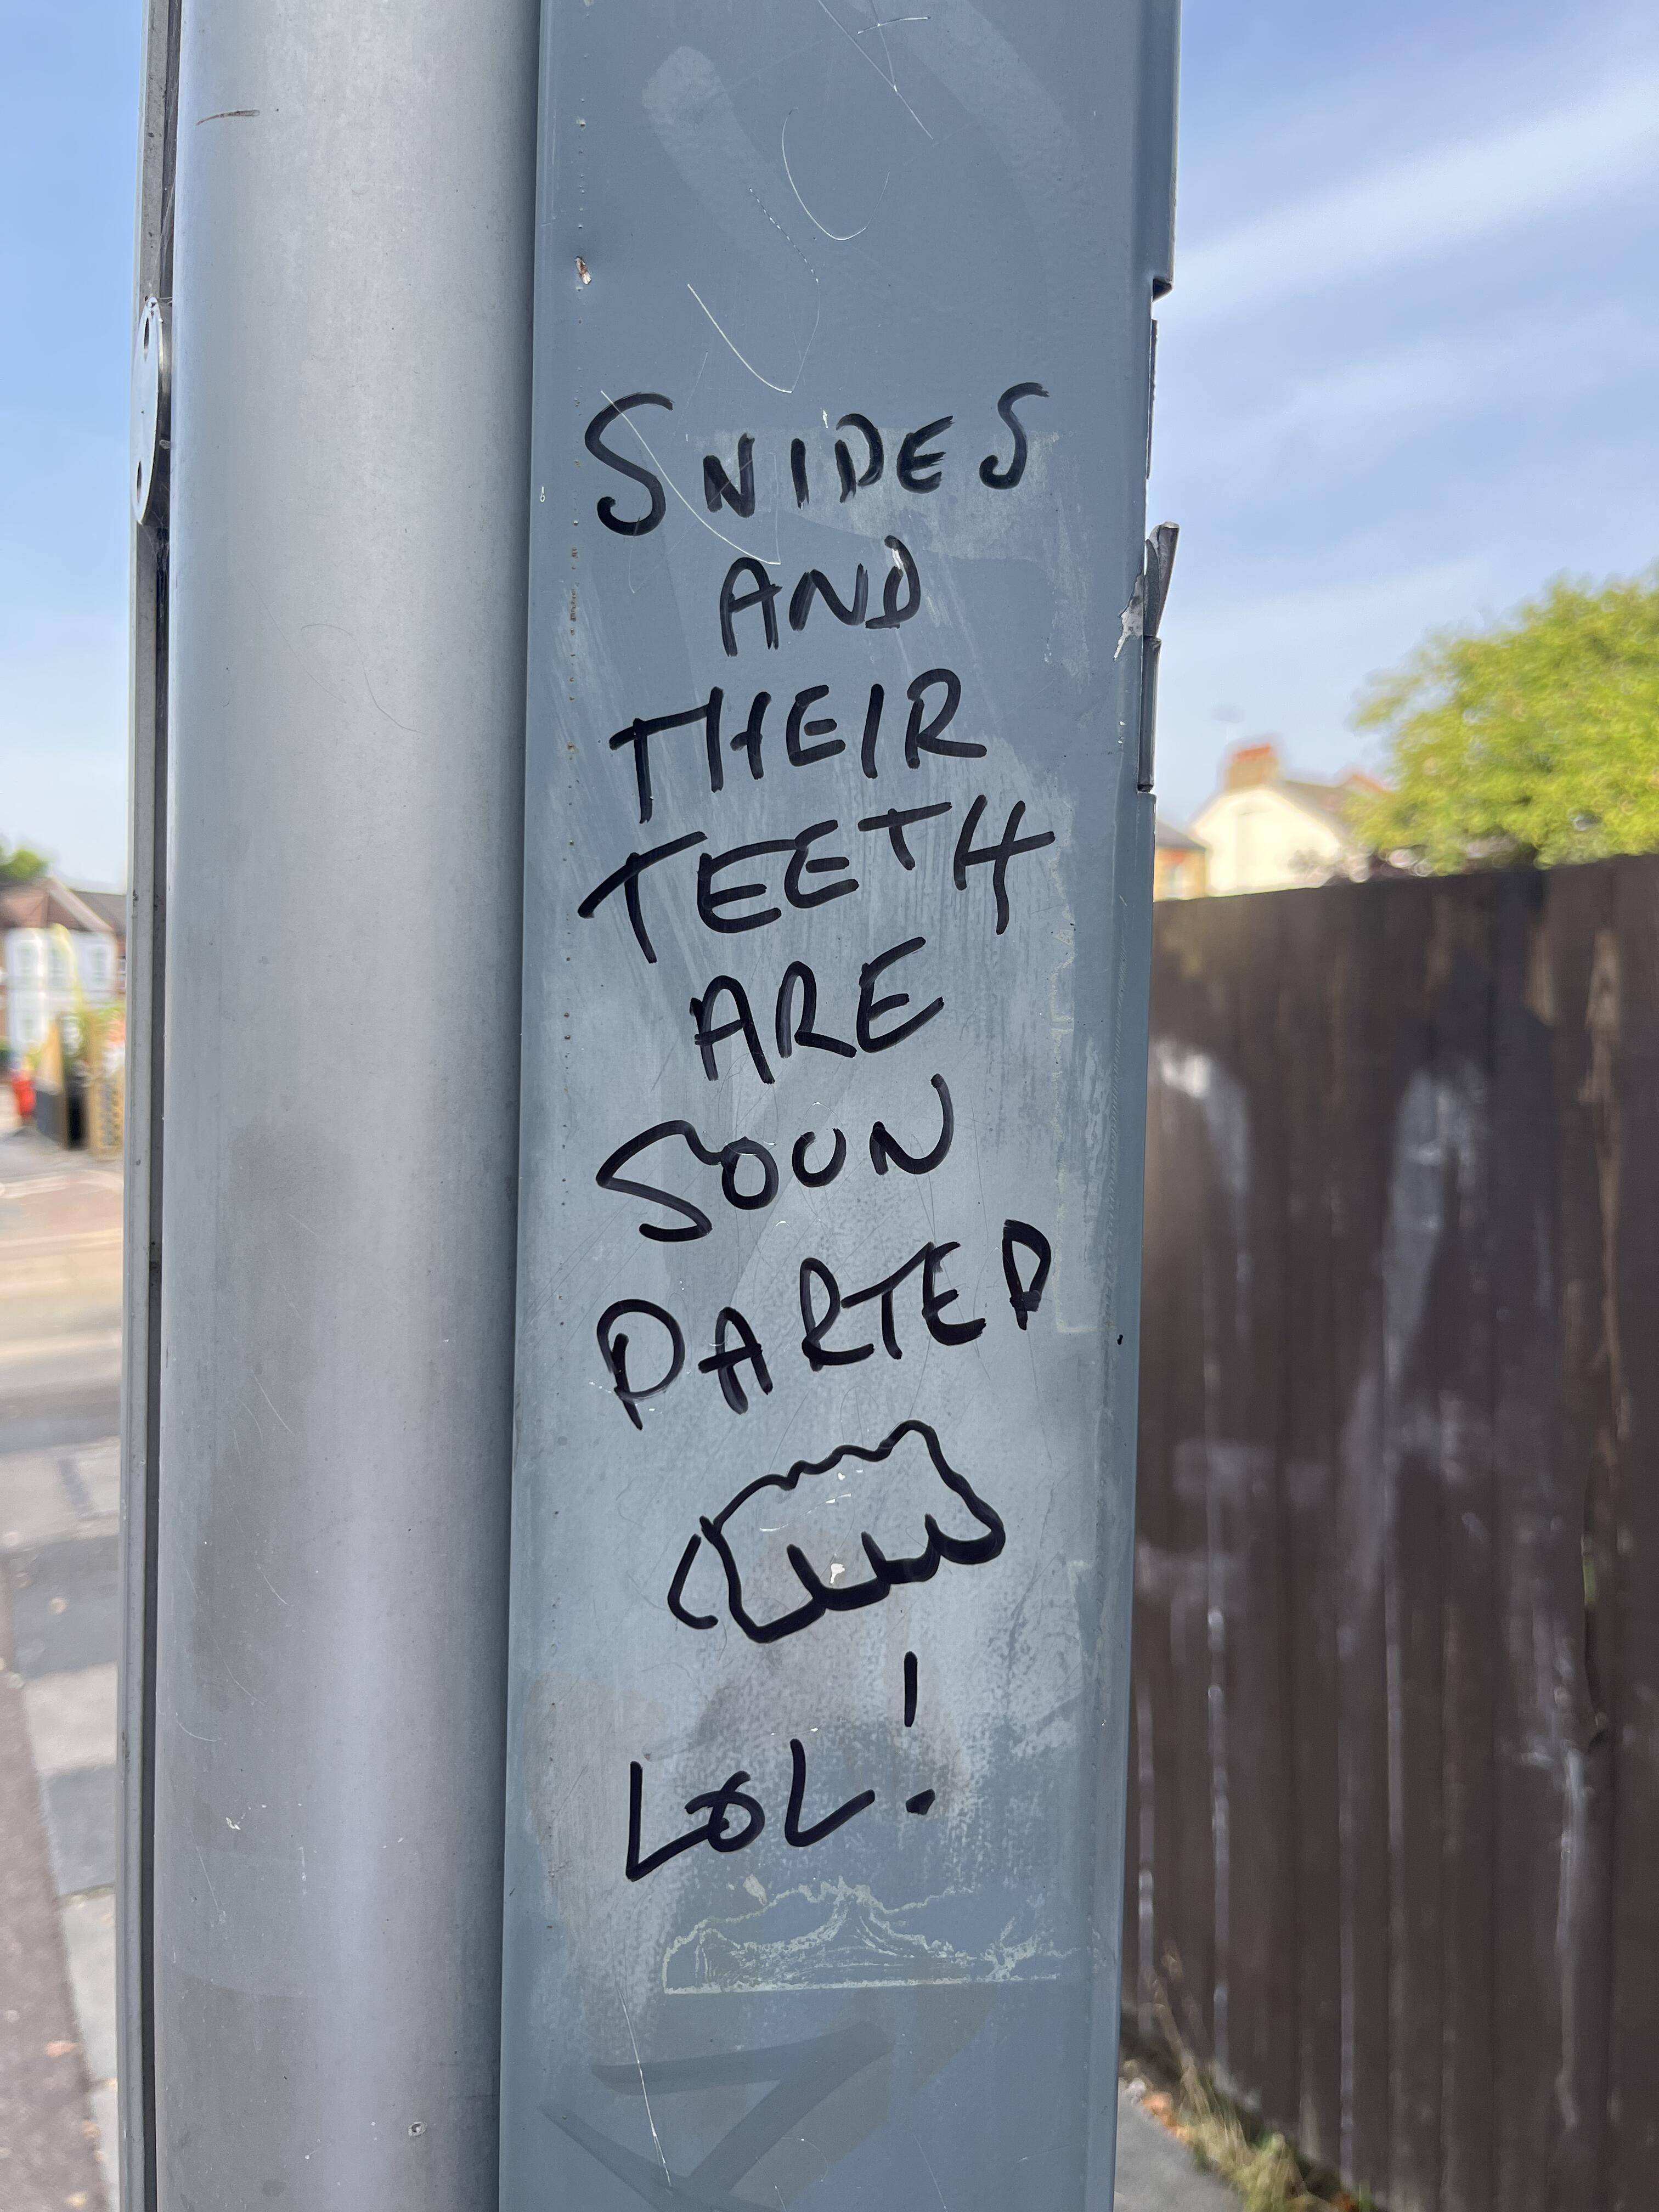 SNIDES
AND
THEIR
TEETH
ARE
SOON
PARTED
LOL!